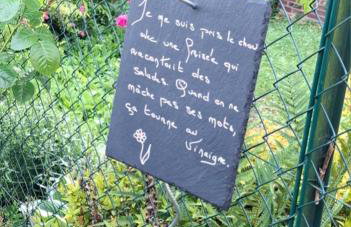 Je me suis pris le chou
avec une frisée qui
racontait des
salades. Quand on ne
mâche pas ses mots,
ça tourne au
vinaigre.